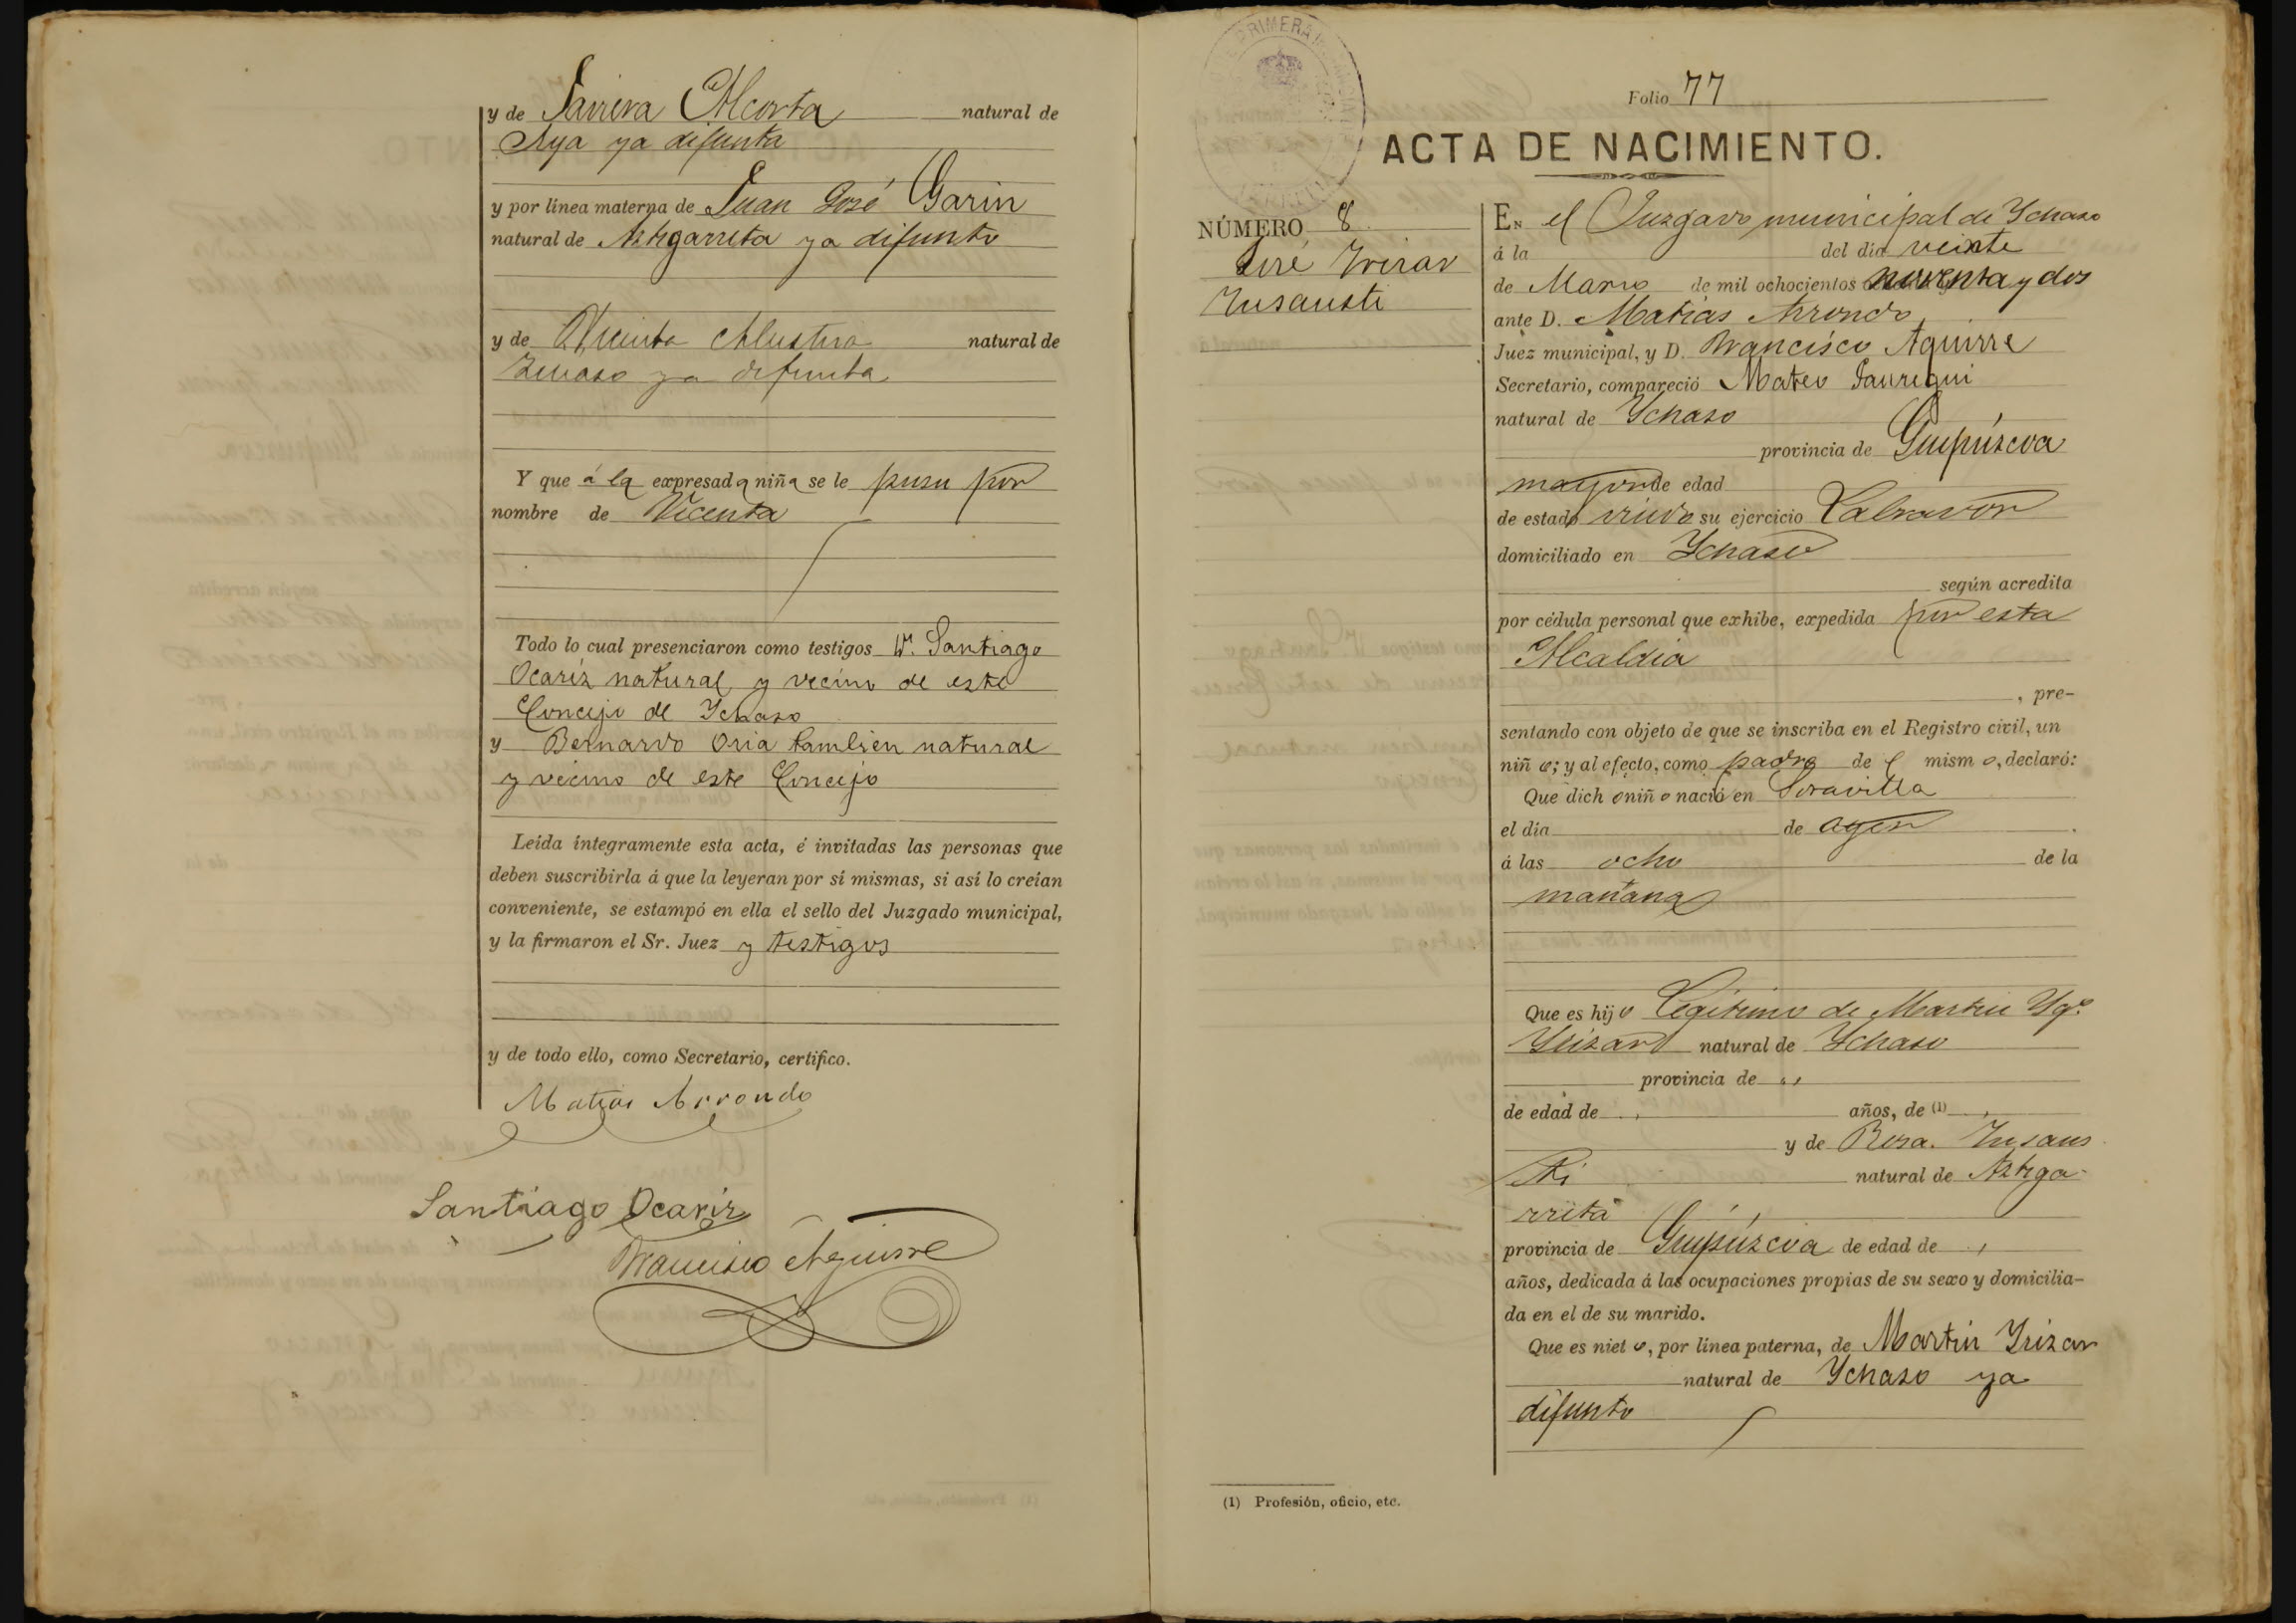 y de Javiera Alcorta natural de
Aya ya difunta
y por línea materna de Juan José Garin
natural de Aztigarreta ya difunto
y de Vicenta Alustiza natural de
ya difunta
Y que á la expresada niña se le puso por
nombre de Vicenta
Todo lo cual presenciaron como testigos Dn. Santiago
Ocariz natural y vecino de este
Concejo de Ychaso
y Bernardo Oria tambien natural
y vecino de este Concejo
Leída íntegramente esta acta, é invitadas las personas que
deben suscribirla á que la leyeran por sí mismas, si así lo creían
conveniente, se estampó en ella el sello del Juzgado municipal,
y la firmaron el Sr. Juez y testigos
y de todo ello, como Secretario, certifico.
Matias Arrondo
Santiago Ocariz
Francisco Aguirre
Folio 77
ACTA DE NACIMIENTO.
NÚMERO 8
José Yrizar
Ynsausti
En el Juzgado municipal de Ychaso
á la del dia veinte
de Marzo de mil ochocientos noventa y dos
ante D. Matias Arrondo
Juez municipal, y D. Francisco Aguirre
Secretario, compareció Mateo Jauregui
natural de Ychaso
provincia de Guipúzcoa
mayor de edad
de estado viudo su ejercicio Labrador
domiciliado en Ychaso
según acredita
por cédula personal que exhibe, expedida por esta
Alcaldia
, pre-
sentando con objeto de que se inscriba en el Registro civil, un
niño; y al efecto, como padre de l mismo, declaró:
Que dicho niño nació en Soravilla
el día de ayer
á las ocho de la
mañana
Que es hijo Legitimo de Martin Ygº
Yrizar natural de Ychaso
provincia de "
de edad de " años, de (1) "
y de Rosa Ynsaus
ti natural de Aztiga-
rrita
provincia de Guipúzcoa de edad de "
años, dedicada á las ocupaciones propias de su sexo y domicilia-
da en el de su marido.
Que es nieto, por línea paterna, de Martin Yrizar
natural de Ychaso ya
difunto
(1) Profesión, oficio, etc.